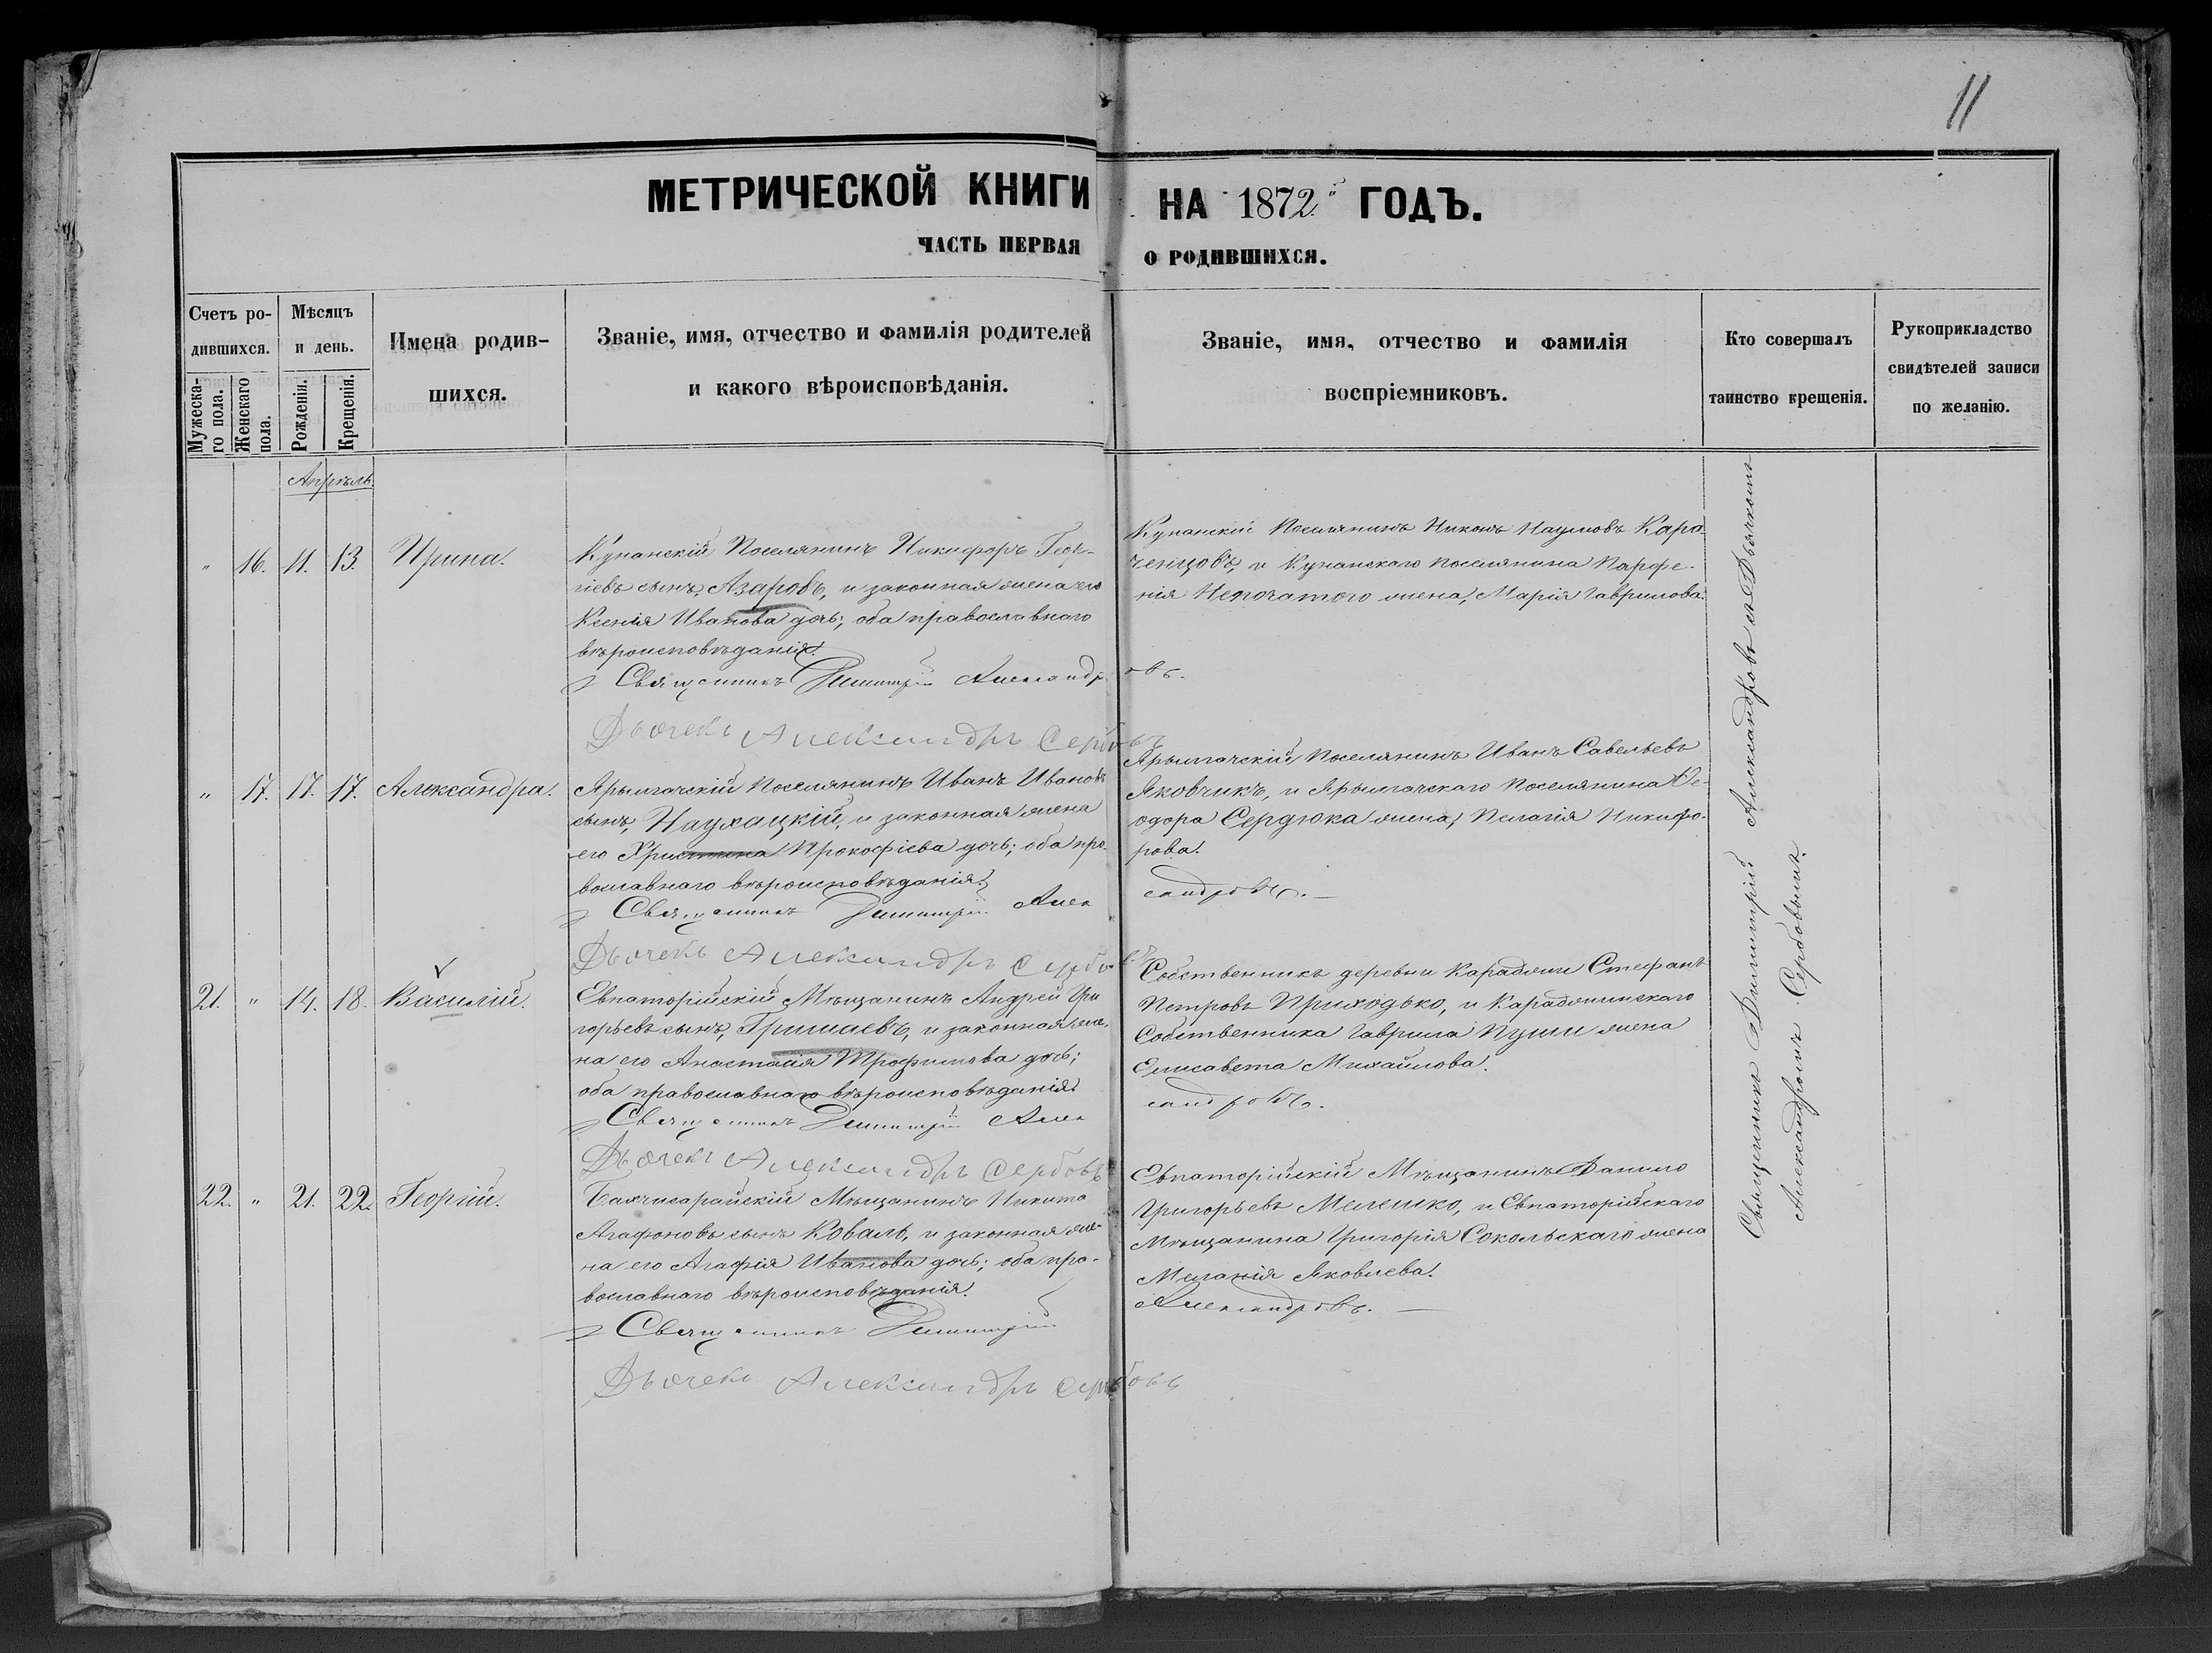 11
МЕТРИЧЕСКОЙ КНИГИ НА 1872й ГОДЪ.
ЧАСТЬ ПЕРВАЯ О РОДИВШИХСЯ.
Счетъ ро-
дившихся.
Мужеска-
го пола.
Женскаго
пола.
Мѣсяцъ
и день.
Рожденія.
Крещенія.
Имена родив-
шихся.
Званіе, имя, отчество и фамилія родителей
и какого вѣроисповѣданія.
Званіе, имя, отчество и фамилія
воспріемниковъ.
Кто совершалъ
таинство крещенія.
Рукоприкладство
свидѣтелей записи
по желанію.
Апрѣль.
" 16. 11. 13. Ирина.
Кунанскій Поселянинъ Никифоръ Геор-
гіевъ сынъ, Азаровъ, и законная жена его
Ксенія Иванова дочь; оба православнаго
вѣроисповѣданія.
Кунанскій Поселянинъ Никонъ Наумовъ Кара-
ченцовъ, и Кунанскаго поселянина Парфе-
нія Непочатого жена, Марія Гаврилова.
Священникъ Димитрій Александровъ.
Дьячекъ Александръ Сербовъ
" 17. 17. 17. Александра.
Ярылгачскій Поселянинъ Иванъ Ивановъ
сынъ, Наухацкій, и законная жена
его Христина Прокофіева дочь; оба пра-
вославнаго вѣроисповѣданія.
Ярылгачскій Поселянинъ Иванъ Савельевъ
Яковчикъ, и Ярылгачскаго Поселянина Ѳе-
одора Сердюка жена, Пелагія Никифо-
рова.
Священникъ Димитрій Александровъ.
Дьячекъ Александръ Сербовъ
21. " 14. 18. Василій.
Евпаторійскій Мѣщанинъ Андрей Гри
горьевъ сынъ, Гришаевъ, и законная же-
на его Анастасія Трофимова дочь;
оба православнаго вѣроисповѣданія.
Собственникъ деревни Караджи Стефанъ
Петровъ Приходько, и Караджинскаго
Собственника Гаврила Пуши жена
Елисавета Михайлова.
Священникъ Димитрій Александровъ.
Дьячекъ Александръ Сербовъ
22. " 21. 22. Георгій.
Бахчисарайскій Мѣщанинъ Никита
Агафоновъ сынъ Коваль, и законная же-
на его Агафія Иванова дочь; оба пра-
вославнаго вѣроисповѣданія.
Евпаторійскій Мѣщанинъ Данило
Григорьевъ Мелешко, и Евпаторійскаго
Мѣщанина Григорія Сокольскаго жена
Меланія Яковлева.
Священникъ Димитрій Александровъ.
Дьячекъ Александръ Сербовъ
Священникъ Димитрій Александровъ съ Дьячкомъ
Александромъ Сербовымъ.